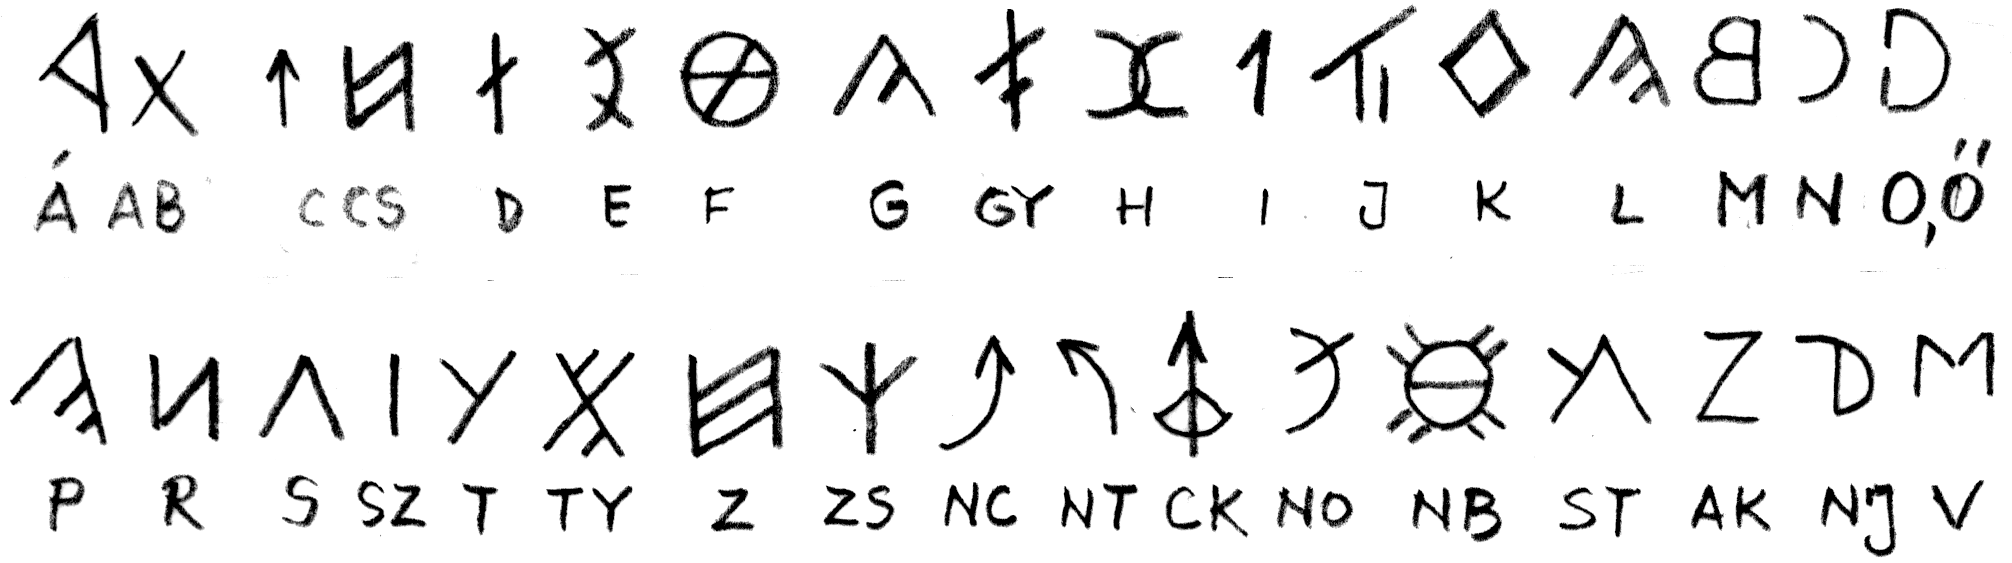 Á A B C CS D E F G GY H I J K L M N O,Ő
P R S SZ T TY Z ZS NC NT CK NO NB ST AK NJ V